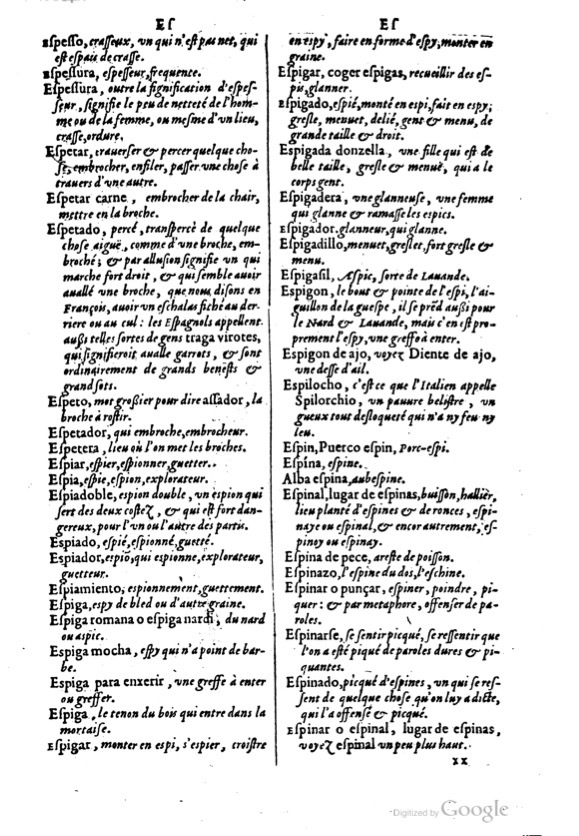 Eſ
Eſpeſſo, craſſeux, vn qui n'eſt pas net, qui
eſt eſpau de craſſe.
Eſpeſſura, eſpeſſeur, frequence.
Eſpeſſura, outre la ſignification d'eſpeſ-
ſeur, ſignifie le peu de netteté de l'hom-
me ou de la femme, ou meſme d'vn lieu,
craſſe, ordure.
Eſpetar, trauerſer & percer quelque cho-
ſe, embrocher, enfiler, paſſer vne choſe à
trauers d'vne autre.
Eſpetar carne, embrocher de la chair,
mettre en la broche.
Eſpetado, percé, tranſpercé de quelque
choſe aiguë, comme d'vne broche, em-
broché; & par alluſion ſignifie vn qui
marche fort droit, & qui ſemble auoir
auallé vne broche, que nous diſons en
François, auoir vn eſchalas fiché au der-
riere ou au cul: les Eſpagnols appellent
auſſi telles ſortes de gens traga virotes,
qui ſignifieroit aualle garrots, & ſont
ordinairement de grands beneſts &
grands ſots.
Eſpeto, mot groſſier pour dire aſſador, la
broche à roſtir.
Eſpetador, qui embroche, embrocheur.
Eſpetera, lieu où l'on met les broches.
Eſpiar, eſpier, eſpionner, guetter.
Eſpia, eſpie, eſpion, explorateur.
Eſpiadoble, eſpion double, vn eſpion qui
ſert des deux coſtez, & qui eſt fort dan-
gereux, pour l'vn ou l'autre des partis.
Eſpiado, eſpié, eſpionné, guetté.
Eſpiador, eſpiō, qui eſpionne, explorateur,
guetteur.
Eſpiamiento, eſpionnement, guettement.
Eſpiga, eſpy de bled ou d'autre graine.
Eſpiga romana o eſpiga nardi, du nard
ou aſpic.
Eſpiga mocha, eſpy qui n'a point de bar-
be.
Eſpiga para enxerir, vne greffe à enter
ou greffer.
Eſpiga, le tenon du bois qui entre dans la
mortaiſe.
Eſpigar, monter en eſpi, s'eſpier, croiſtre
Eſ
en eſpy, faire en forme d'eſpy, monter en
graine.
Eſpigar, coger eſpigas, recueillir des eſ-
pis, glanner.
Eſpigado, eſpié, monté en eſpi, fait en eſpy;
greſle, menuet, delié, gent & menu, de
grande taille & droit.
Eſpigada donzella, vne fille qui eſt de
belle taille, greſle & menuë, qui a le
corps gent.
Eſpigadera, vne glanneuſe, vne femme
qui glanne & ramaſſe les eſpics.
Eſpigador, glanneur, qui glanne.
Eſpigadillo, menuet, greſlet, fort greſle &
menu.
Eſpigaſil, Aſpic, ſorte de Lauande.
Eſpigon, le bout & pointe de l'eſpi, l'ai-
guillon de la gueſpe, il ſe prēd auſſi pour
le Nard & Lauande, mais c'en eſt pro-
prement l'eſpy, vne greffe à enter.
Eſpigon de ajo, voyez Diente de ajo,
vne deſſe d'ail.
Eſpilocho, c'eſt ce que l'Italien appelle
Spilorchio, vn pauure beliſtre, vn
gueux tout deſloqueté qui n'a ny feu ny
leu.
Eſpin, Puerco eſpin, Porc-eſpi.
Eſpina, eſpine.
Alba eſpina, aubeſpine.
Eſpinal, lugar de eſpinas, buiſſon, hallier,
lieu planté d'eſpines & de ronces, eſpi-
naye ou eſpinal, & encor autrement, eſ-
pinoy ou eſpinay.
Eſpina de pece, areſte de poiſſon.
Eſpinazo, l'eſpine du dos, l'eſchine.
Eſpinar o punçar, eſpiner, poindre, pi-
quer: & par metaphore, offenſer de pa-
roles.
Eſpinarſe, ſe ſentir piqué, ſe reſſentir que
l'on a eſté piqué de paroles dures & pi-
quantes.
Eſpinado, picqué d'eſpines, vn qui ſe reſ-
ſent de quelque choſe qu'on luy a dicte,
qui l'a offenſé & picqué.
Eſpinar o eſpinal, lugar de eſpinas,
voyez eſpinal vn peu plus haut.
xx
Digitized by Google